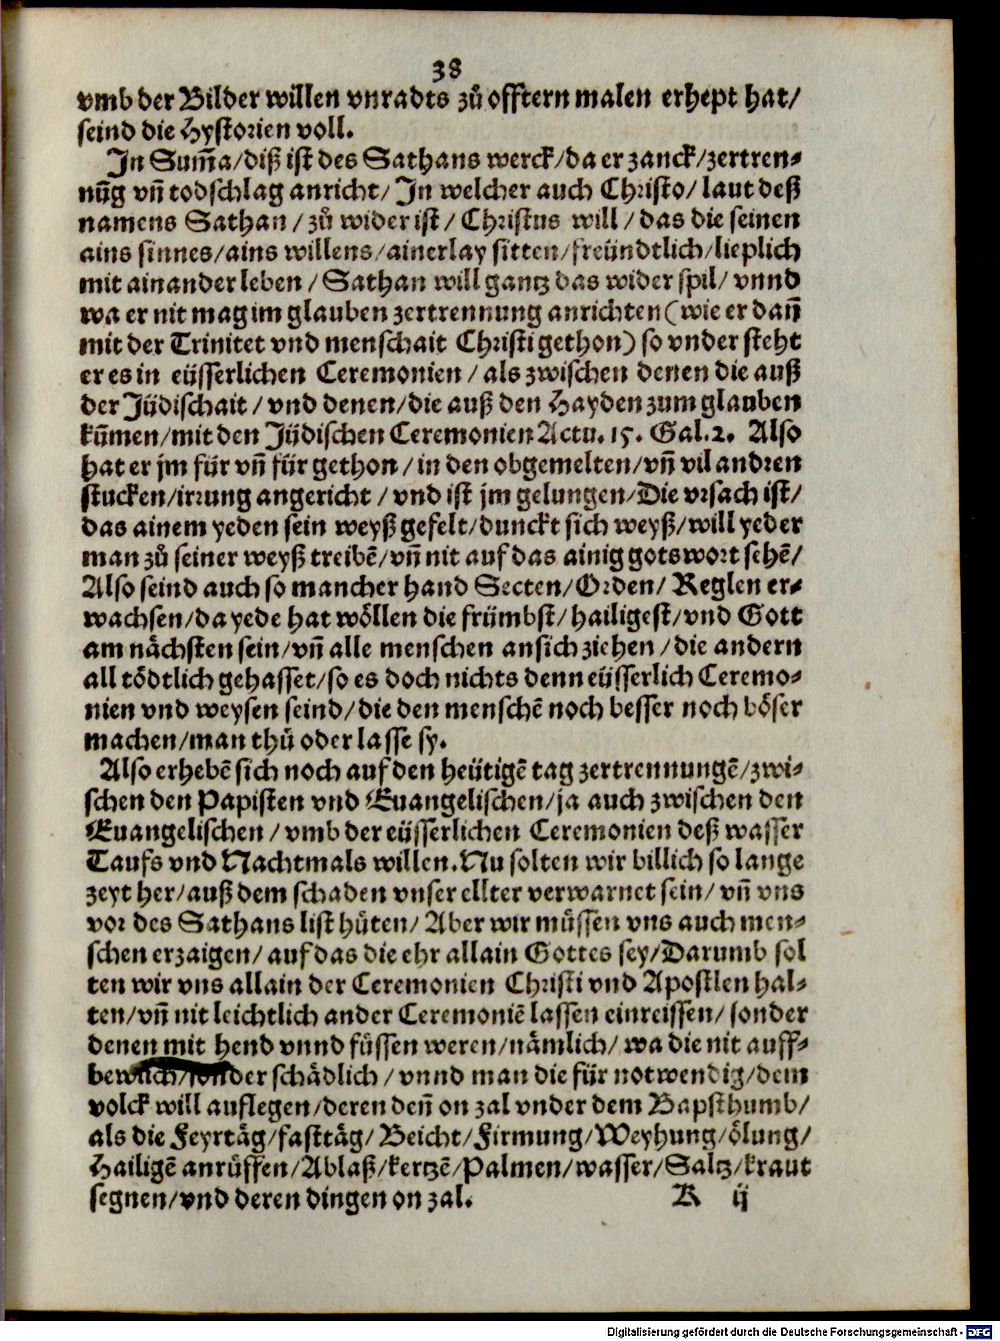 38
vmb der Bilder willen vnradts zů offtern malen erhept hat/
seind die Hystorien voll.
In Sum̃a/diß ist des Sathans werck/da er zanck/zertren-
nūg vñ todschlag anricht/In welcher auch Christo/laut deß
namens Sathan/zů wider ist/Christus will/das die seinen
ains sinnes/ains willens/ainerlay sitten/freündtlich/lieplich
mit ainander leben/Sathan will gantz das widerspil/vnnd
wa er nit mag im glauben zertrennung anrichten(wie er dañ
mit der Trinitet vnd menschait Christi gethon)so vnder steht
er es in eüsserlichen Ceremonien/als zwischen denen die auß
der Jüdischait/vnd denen/die auß den Hayden zum glauben
kūmen/mit den Jüdischen Ceremonien Actu. 15. Gal.2. Also
hat er jm für vñ für gethon/in den obgemelten/vñ vil andren
stucken/irrung angericht/vnd ist jm gelungen/Die vrsach ist/
das ainem yeden sein weyß gefelt/dunckt sich weyß/will yeder
man zů seiner weyß treibē/vñ nit auf das ainig gots wort sehē/
Also seind auch so mancher hand Secten/Orden/Reglen er-
wachsen/da yede hat wöllen die frümbst/hailigest/vnd Gott
am nächsten sein/vñ alle menschen an sich ziehen/die andern
all tödtlich gehasset/so es doch nichts denn eüsserlich Ceremo-
nien vnd weysen seind/die den menschē noch besser noch böser
machen/man thü oder lasse sy.
Also erhebē sich noch auf den heütigē tag zertrennungē/zwi-
schen den Papisten vnd Euangelischen/ja auch zwischen den
Euangelischen/vmb der eüsserlichen Ceremonien deß wasser
Taufs vnd Nachtmals willen.Nu solten wir billich so lange
zeyt her/auß dem schaden vnser ellter verwarnet sein/vñ vns
vor des Sathans list hüten/Aber wir müssen vns auch men-
schen erzaigen/auf das die ehr allain Gottes sey/Darumb sol
ten wir vns allain der Ceremonien Christi vnd Apostlen hal-
ten/vñ nit leichtlich ander Ceremoniē lassen einreissen/sonder
denen mit hend vnnd füssen weren/nämlich/wa die nit auff-
bewlich/sonder schädlich/vnnd man die für notwendig/dem
volck will auflegen/deren deñ on zal vnder dem Bapsthumb/
als die Feyrtäg/fasttäg/Beicht/Firmung/Weyhung/ölung/
Hailigē anrüffen/Ablaß/kertzē/Palmen/wasser/Saltz/kraut
segnen/vnd deren dingen on zal. K ij
Digitalisierung gefördert durch die Deutsche Forschungsgemeinschaft - DFG